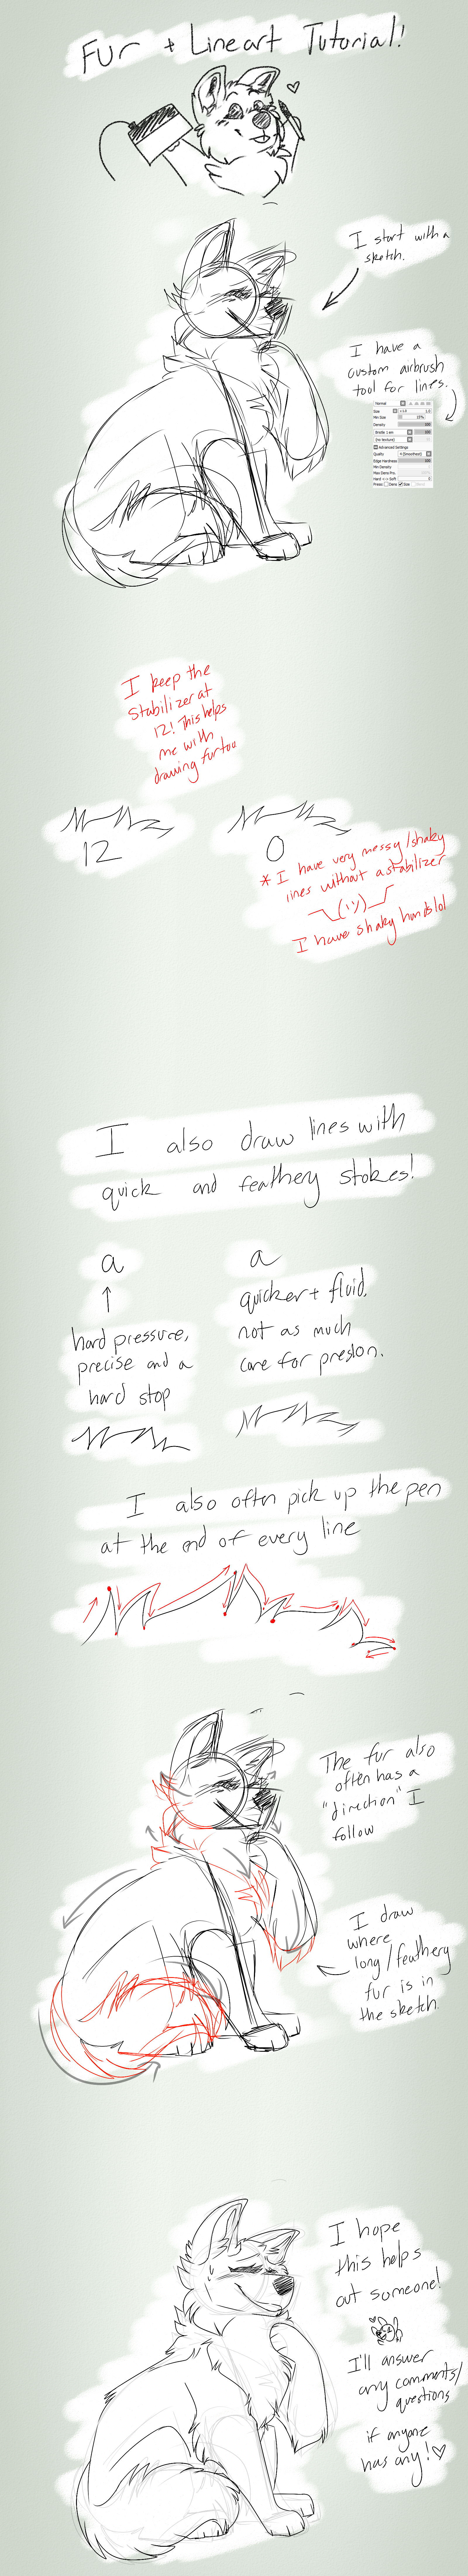 Fur + Lineart Tutorial!
I start with a
sketch.
I have a
custom airbrush
tool for lines.
Normal
Size x1.0 1.0
Min Size 15%
Density 100
Bristle 1 em 100
(no texture)
Advanced Settings
Quality 4 (Smoothest)
Edge Hardness 100
Min Density
Max Dens Prs.
Hard <-> Soft
Press: Dens Size
I keep the
Stabilizer at
12! This helps
me with
drawing fur too
12
0
* I have very messy/shaky
lines without a stabilizer
¯\_(ツ)_/¯
I have shaky hands lol
I also draw lines with
quick and feathery stokes!
a
hard pressure,
precise and a
hard stop
a
quicker + fluid.
not as much
care for presion.
I also often pick up the pen
at the end of every line
The fur also
often has a
"direction" I
follow
I draw
where
long/feathery
fur is in
the sketch.
I hope
this helps
out someone!
I'll answer
any comments/
questions
if anyone
has any! ♡